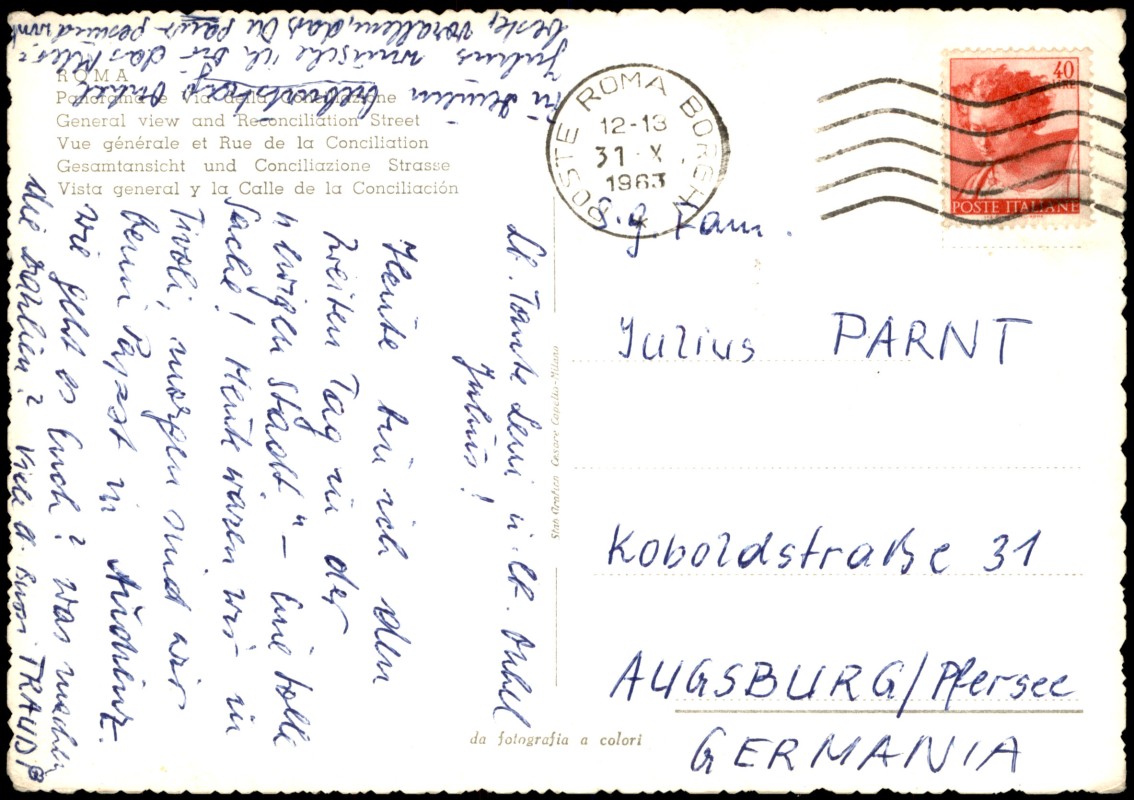 ROMA
Panorama e Via della Conciliazione
General view and Reconciliation Street
Vue générale et Rue de la Conciliation
Gesamtansicht und Conciliazione Strasse
Vista general y la Calle de la Conciliación
POSTE ROMA BORGHI
12-13
31·X
1963
40
LIRE
POSTE ITALIANE
S. g. Fam.
Julius PARNT
Koboldstraße 31
AUGSBURG/Pfersee
GERMANIA
Lb. Tante Leni u. lb. Onkel
Julius!
Heute bin ich den
zweiten Tag in der
"ewigen Stadt" – eine tolle
Sache! Heute waren wir in
Tivoli, morgen sind wir
beim Papst in Audienz.
Wie geht es Euch? Was machen
die? Viele Bussi TRAUDI
Zu Deinem Geburtstag Onkel
Julius wünsche ich Dir das Aller-
beste, vorallem, das Du ganz gesund wirst
Stab. Grafico Cesare Capello-Milano
da fotografia a colori